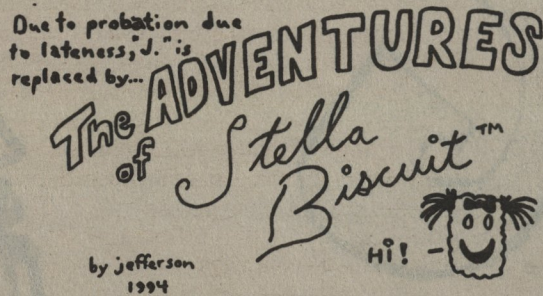 Due to probation due
to lateness, "J." is
replaced by...
The ADVENTURES
of Stella
Biscuit™
Hi! -
by jefferson
1994